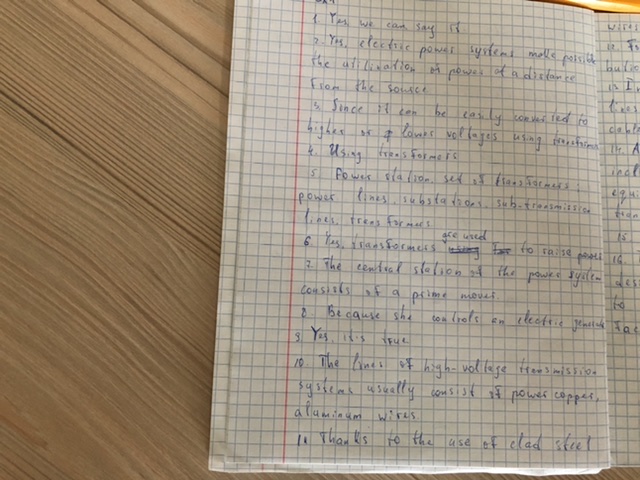 1. Yes, we can say it
2. Yes, electric power systems make possible
the utilization of power at a distance
from the source
3. Since it can be easily converted to
higher or lower voltages using transform
4. Using transformers
5. Power station, set of transformers;
power lines, substations, sub-transmission
lines, transformers
6. Yes, transformers are used to raise power
7. The central station of the power system
consists of a prime mover
8. Because she controls an electric generat
9. Yes, it's true
10. The lines of high-voltage transmission
systems usually consist of power copper,
aluminum wires
11. Thanks to the use of clad steel
wires